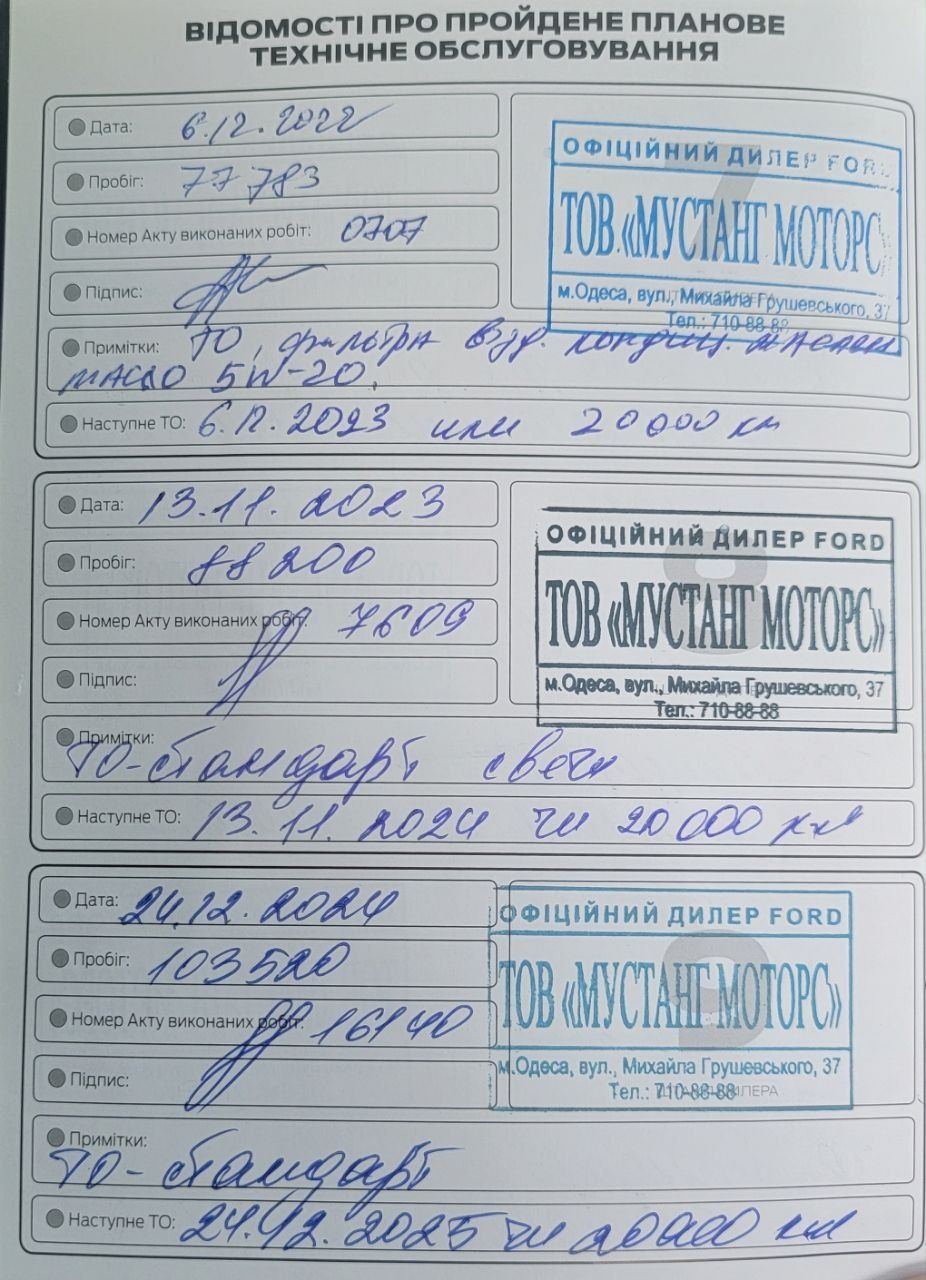 ВІДОМОСТІ ПРО ПРОЙДЕНЕ ПЛАНОВЕ
ТЕХНІЧНЕ ОБСЛУГОВУВАННЯ
Дата: 6.12.2022
Пробіг: 77783
Номер Акту виконаних робіт: 0707
Підпис:
7
ОФІЦІЙНИЙ ДИЛЕР FORD
ТОВ «МУСТАНГ МОТОРС»
м.Одеса, вул., Михайла Грушевського, 37
Тел.: 710-88-88
Примітки: ТО, фильтра взд. кондиц.
масло 5W-20,
Наступне ТО: 6.12.2023 или 20000 км
Дата: 13.11.2023
Пробіг: 88200
Номер Акту виконаних робіт: 7609
Підпис:
8
ОФІЦІЙНИЙ ДИЛЕР FORD
ТОВ «МУСТАНГ МОТОРС»
м.Одеса, вул., Михайла Грушевського, 37
Тел.: 710-88-88
Примітки:
ТО-стандарт свечи
Наступне ТО: 13.11.2024 чи 20000 км
Дата: 24.12.2024
Пробіг: 103520
Номер Акту виконаних робіт: 16140
Підпис:
9
ОФІЦІЙНИЙ ДИЛЕР FORD
ТОВ «МУСТАНГ МОТОРС»
м.Одеса, вул., Михайла Грушевського, 37
Тел.: 710-88-88
Примітки:
ТО-стандарт
Наступне ТО: 24.12.2025 чи 20000 км